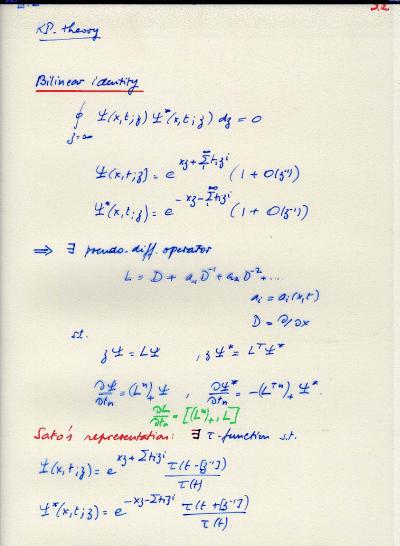 III.2
3.2
KP-theory
Bilinear identity
∮_{z=∞} Ψ(x,t;z) Ψ*(x,t;z) dz = 0
Ψ(x,t;z) = e^{xz+Σ_1^∞ t_i z^i} (1 + O(z^{-1}))
Ψ*(x,t;z) = e^{-xz-Σ_1^∞ t_i z^i} (1 + O(z^{-1}))
⇒ ∃ pseudo-diff. operator
L = D + a_1 D^{-1} + a_2 D^{-2} + ...
a_i = a_i(x,t)
D = ∂/∂x
s.t.
zΨ = LΨ , zΨ* = L^T Ψ*
∂Ψ/∂t_n = (L^n)_+ Ψ , ∂Ψ*/∂t_n = -(L^{Tn})_+ Ψ*
∂L/∂t_n = [(L^n)_+, L]
Sato's representation: ∃ τ-function s.t.
Ψ(x,t;z) = e^{xz+Σt_i z^i} τ(t-[z^{-1}])/τ(t)
Ψ*(x,t;z) = e^{-xz-Σt_i z^i} τ(t+[z^{-1}])/τ(t)